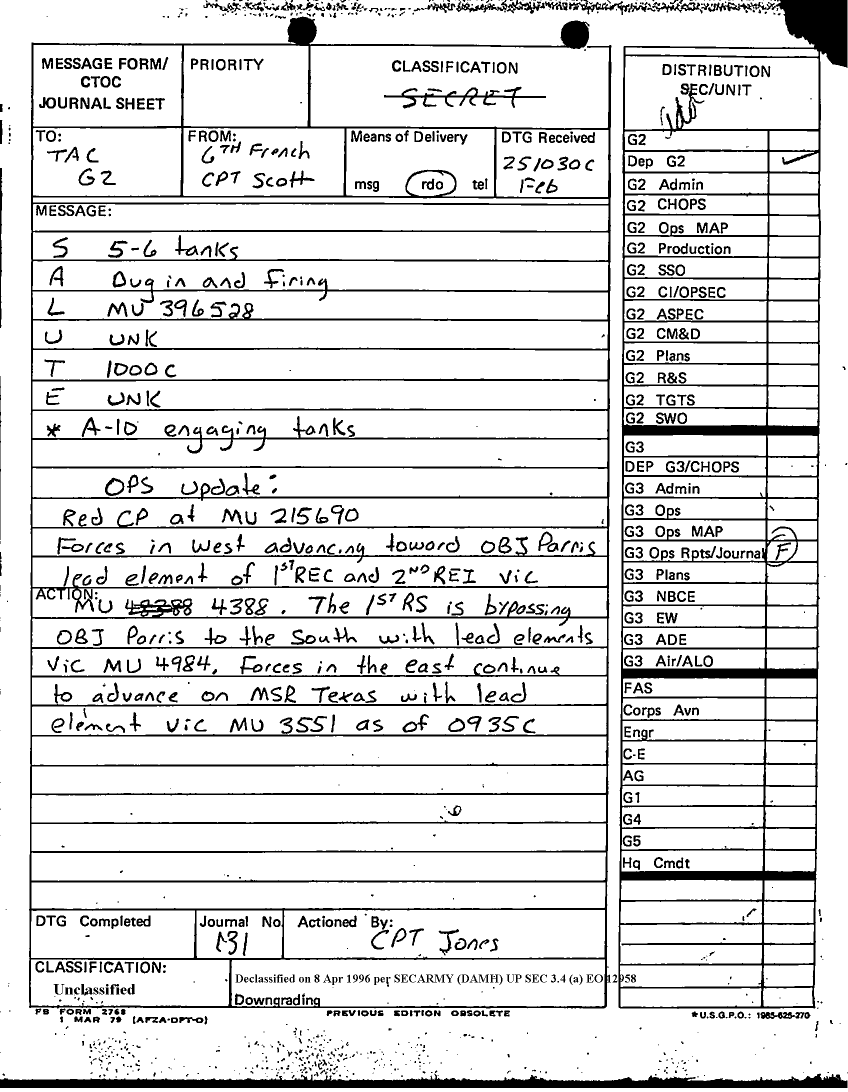 MESSAGE FORM/
CTOC
JOURNAL SHEET
PRIORITY
CLASSIFICATION
SECRET
TO:
TAC
G2
FROM:
6TH French
CPT Scott
Means of Delivery
msg rdo tel
DTG Received
251030C
Feb
MESSAGE:
S 5-6 tanks
A Dug in and firing
L MU 396528
U UNK
T 1000C
E UNK
* A-10 engaging tanks
OPS update:
Red CP at MU 215690
Forces in west advancing toward OBJ Parris
lead element of 1ST REC and 2ND REI vic
ACTION:
MU 4388. The 1ST RS is bypassing
OBJ Parris to the South with lead elements
Vic MU 4984. Forces in the east continue
to advance on MSR Texas with lead
element vic MU 3551 as of 0935C
DTG Completed
Journal No
131
Actioned By:
CPT Jones
CLASSIFICATION:
Unclassified
Declassified on 8 Apr 1996 per SECARMY (DAMH) UP SEC 3.4 (a) EO 12958
Downgrading
FB FORM 2768
1 MAR 79 (AFZA-DPT-O)
PREVIOUS EDITION OBSOLETE
*U.S.G.P.O.: 1985-625-270
DISTRIBUTION
SEC/UNIT
G2
Dep G2
G2 Admin
G2 CHOPS
G2 Ops MAP
G2 Production
G2 SSO
G2 CI/OPSEC
G2 ASPEC
G2 CM&D
G2 Plans
G2 R&S
G2 TGTS
G2 SWO
G3
DEP G3/CHOPS
G3 Admin
G3 Ops
G3 Ops MAP
G3 Ops Rpts/Journal F
G3 Plans
G3 NBCE
G3 EW
G3 ADE
G3 Air/ALO
FAS
Corps Avn
Engr
C-E
AG
G1
G4
G5
Hq Cmdt